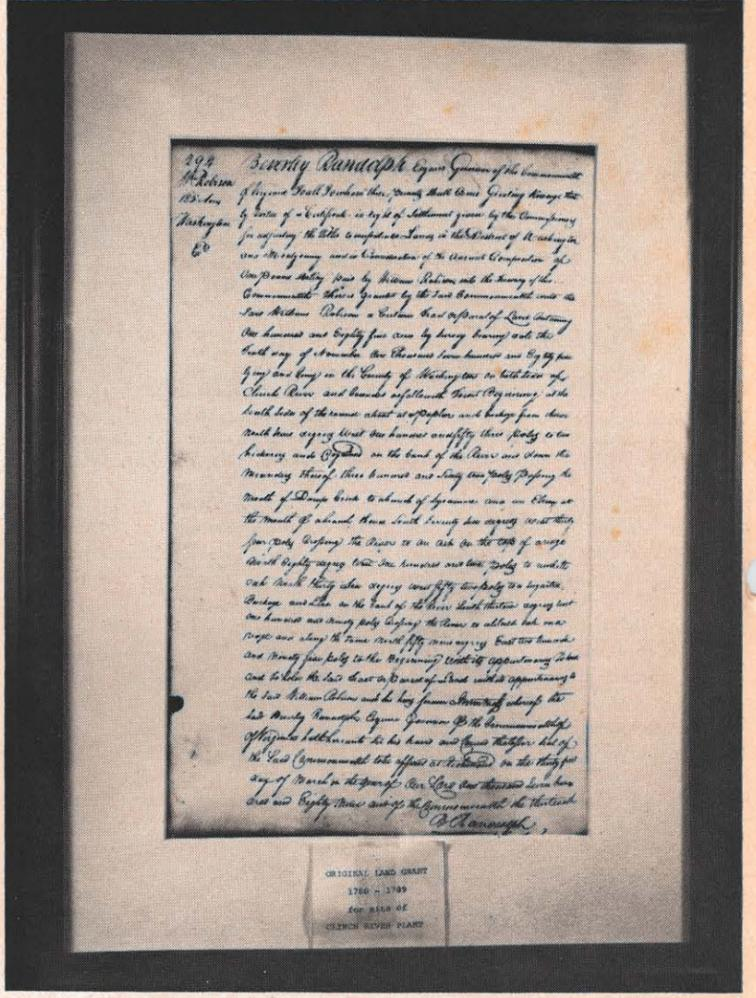 294
Wm Robison
185 Acres
Washington
Co
Beverley Randolph Esquire Governor of the Commonwealth
of Virginia To all to whom these presents shall Come Greeting Know ye that
by virtue of a Certificate in right of Settlement given by the Commissioners
for adjusting the titles to unpatented Lands in the District of Washington
and Montgomery and in Consideration of the Ancient Composition of
One pound sterling paid by William Robison into the Treasury of this
Commonwealth there is granted by the said Commonwealth unto the
said William Robison a Certain Tract or Parcel of Land Containing
One hundred and Eighty five acres by Survey bearing date the
day of November One Thousand Seven hundred and Eighty
lying and being in the County of Washington on both sides of
Clinch River and bounded as followeth To wit Beginning at the
South side of the at a Poplar and from thence
North degrees West One hundred and fifty three poles to two
hickorys and Dogwood on the bank of the River and down the
Meanders thereof three hundred and Sixty two poles Passing the
Mouth of Dumps Creek to a bunch of Sycamore and an Elm at
the Mouth of a branch thence South Seventy degrees West thirty
four poles Crossing the River to an ash on the top of a ridge
North Eighty degrees West One hundred and two poles to a white
oak North thirty degrees West fifty two poles to a
Buckeye and on the bank of the River South thirteen degrees East
one hundred and ninety poles Crossing the River to a black oak on a
ridge and along the same North fifty nine degrees East two hundred
and Ninety five poles to the Beginning with its appurtenances To have
and to hold the said Tract or Parcel of Land with its appurtenances to
the said William Robison and his heirs forever In witness whereof the
said Beverley Randolph Esquire Governor of the Commonwealth of
of Virginia hath hereunto set his hand and Caused the lesser Seal of
the Said Commonwealth to be affixed at Richmond on the thirty first
day of March in the year of Our Lord One thousand Seven hun
dred and Eighty Nine and of the Commonwealth the thirteenth
B Randolph
ORIGINAL LAND GRANT
1780 - 1789
for site of
CLINCH RIVER PLANT